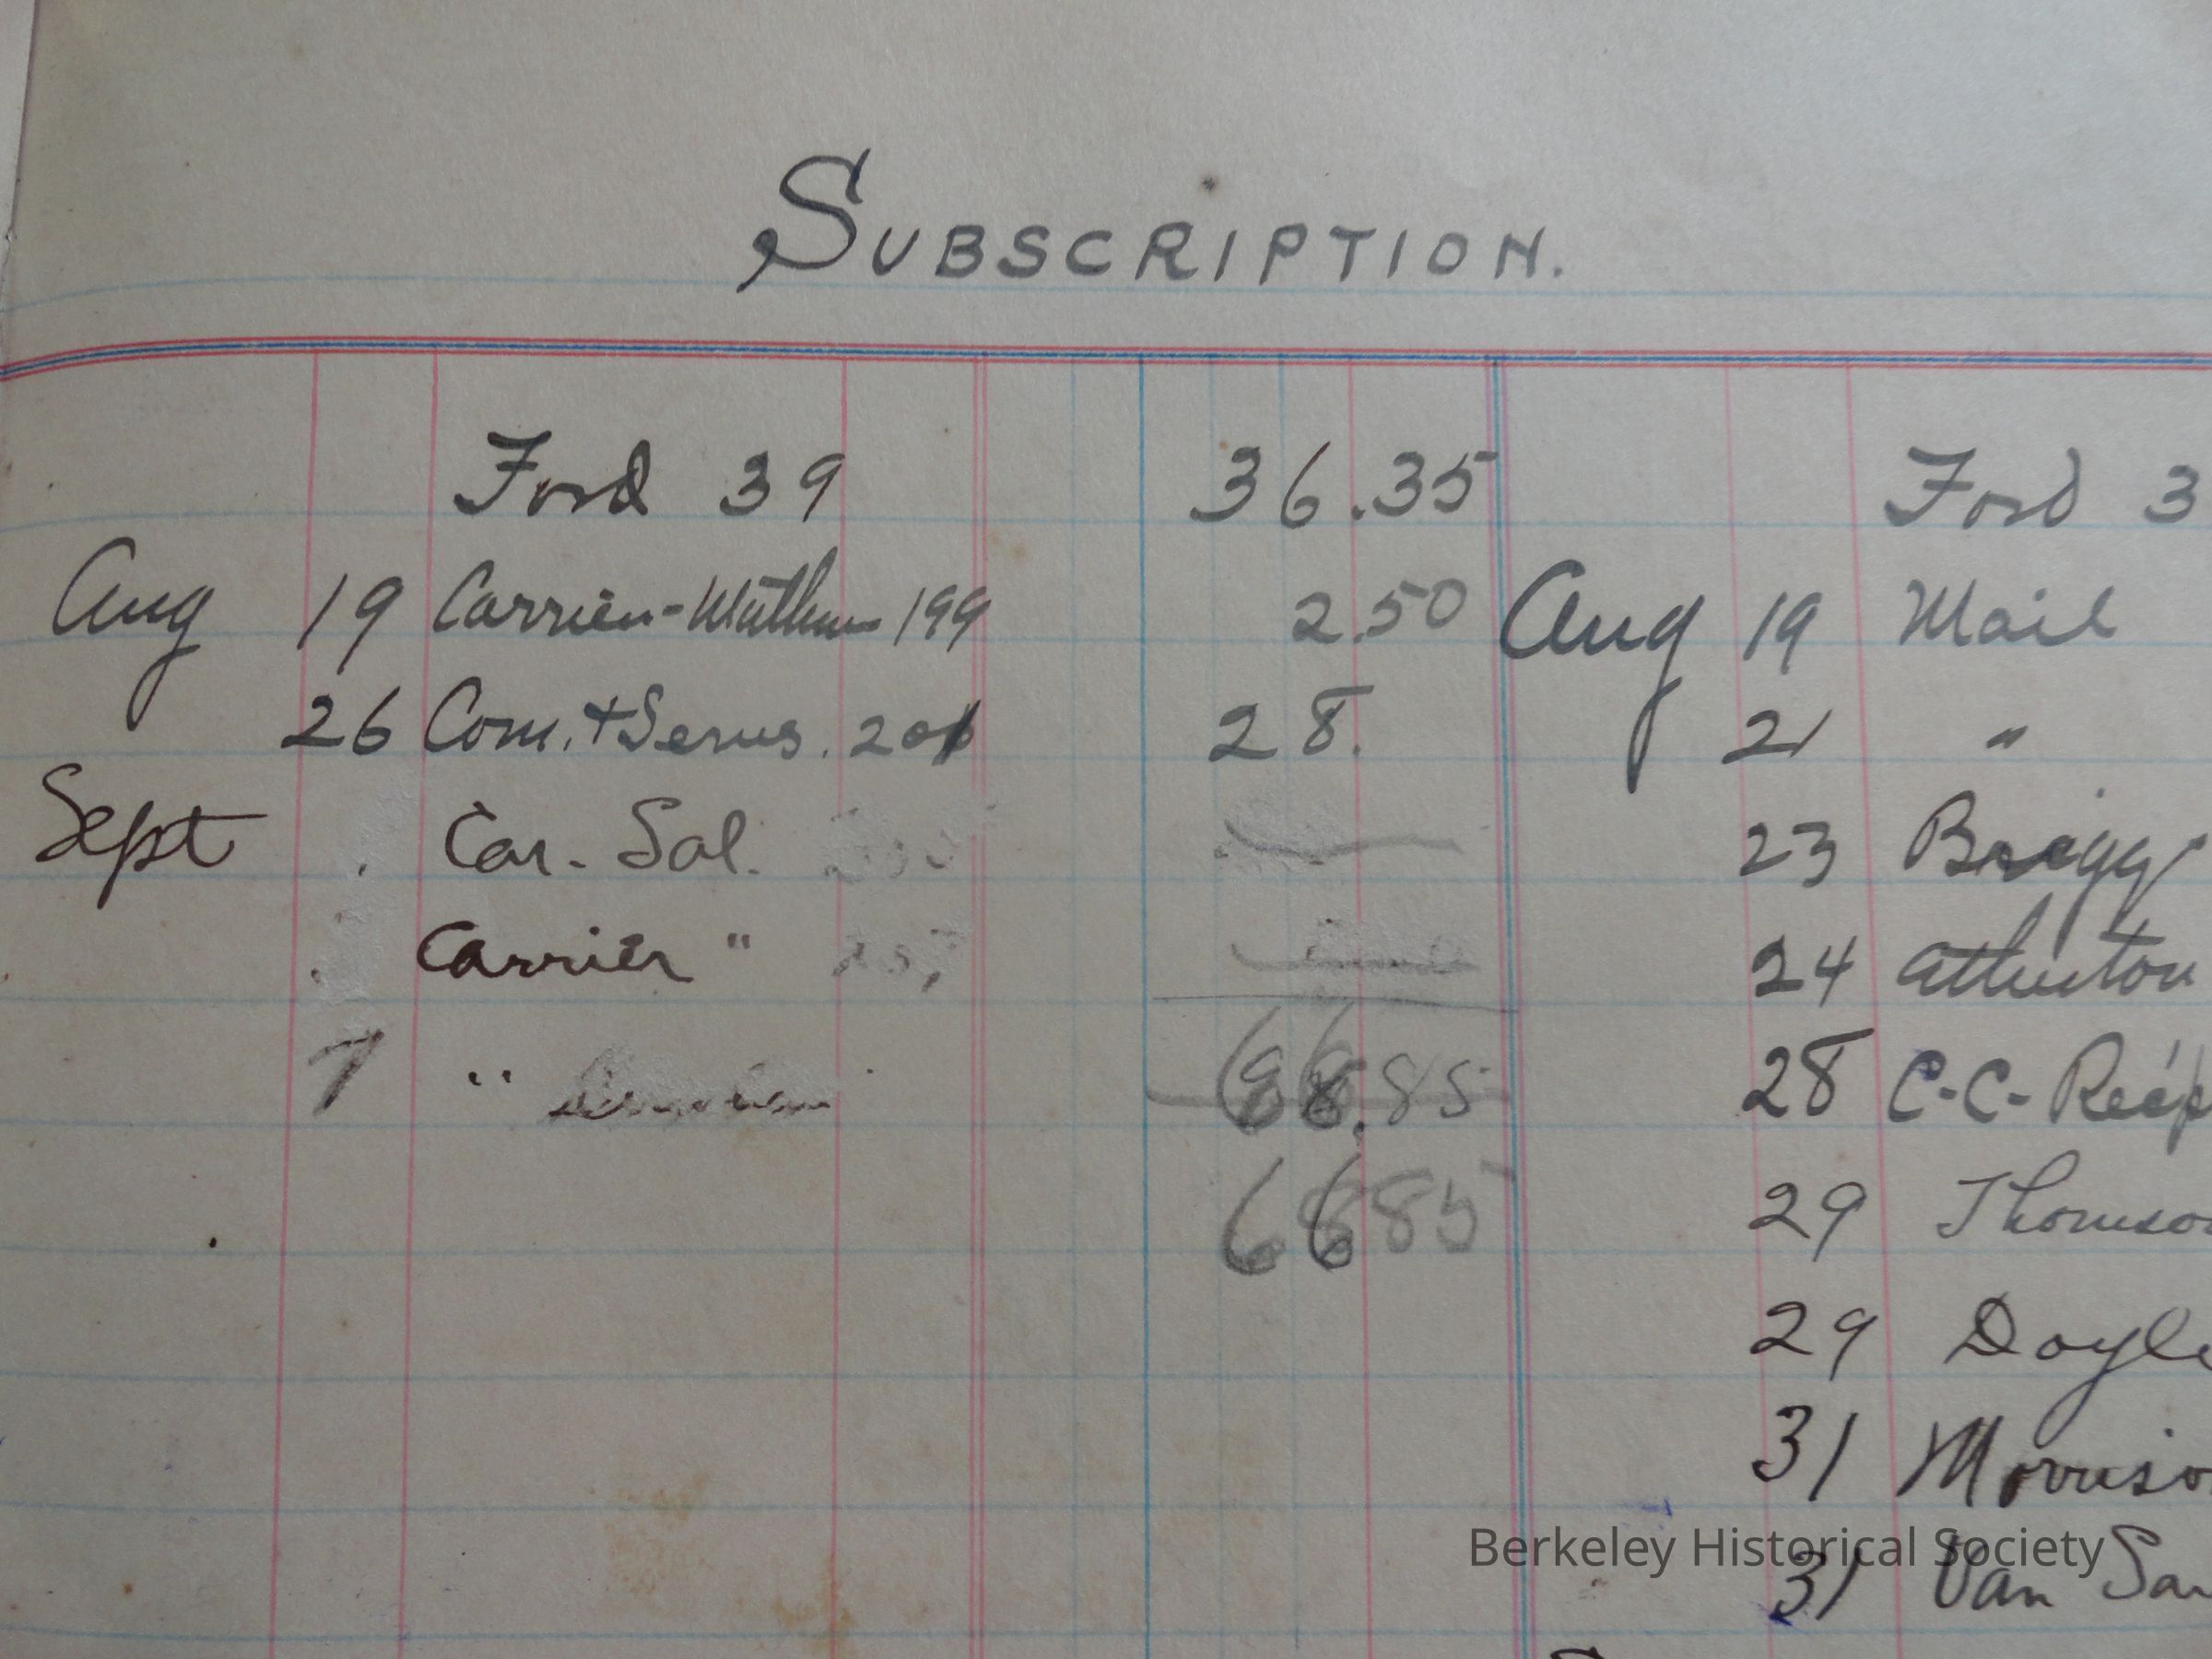 SUBSCRIPTION.
Ford 39 36.35
Aug 19 Carrier- 199 2.50
26 Com. + Serus. 201 28.
Sept Car. Sal.
Carrier "
7 "
66.85
66 85
Ford 3
Aug 19 Mail
21 "
23 Bragg
24 Atherton
28 C-C- Recp
29 Thomson
29 Doyle
31 Morriso
31 Van San
Berkeley Historical Society